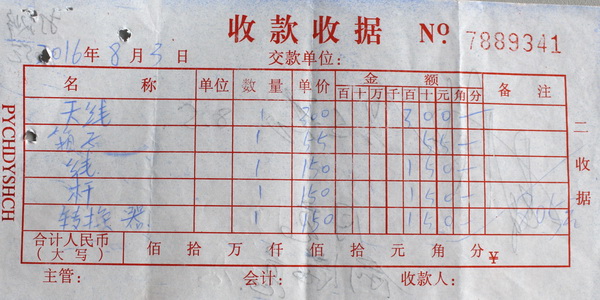 收款收据 No. 7889341
2016年8月3日 交款单位:
名称 单位 数量 单价 金额 备注
百十万千百十元角分
天线 1 300 300—
箱子 1 55 55—
线 1 150 150—
杆 1 150 150—
转换器 1 150 150—
合计人民币(大写) 佰拾万仟佰拾元角分¥
主管: 会计: 收款人:
PYCHDYSHCH
二收据